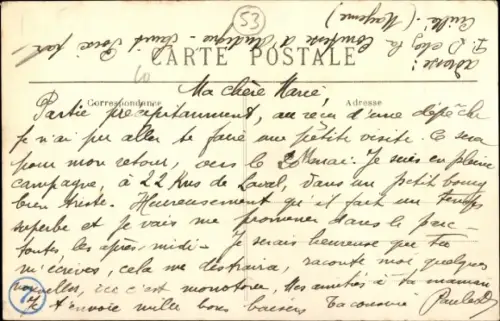 53
adresse :
P. D chez la Comtesse d'Andigné - Saint Poix par
Cuillé - (Mayenne)
CARTE POSTALE
Correspondance
Adresse
Ma chère Marie,
Partie précipitamment, au reçu d'une dépêche
je n'ai pu aller te faire une petite visite. Ce sera
pour mon retour, vers le 20 mai. Je suis en pleine
campagne, à 22 Kms de Laval, dans un petit bourg
bien triste. Heureusement qu'il fait un temps
superbe et je vais me promener dans le parc
toutes les après-midi - Je serais heureuse que tu
m'écrives, cela me distraira, raconte moi quelques
nouvelles, ici c'est monotone. Mes amitiés à ta maman
Je t'envoie mille bons baisers Ta cousine